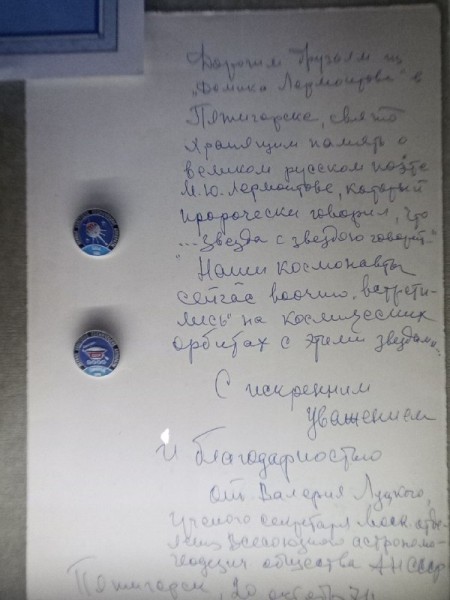 Дорогим друзьям из
"Домика Лермонтова" в
Пятигорске, свято
хранящим память о
великом русском поэте
М.Ю. Лермонтове, который
пророчески говорил, что
"...звезда с звездою говорит."
Наши космонавты
сейчас воочию "встрети-
лись" на космических
орбитах с этими звездами.
С искренним
уважением
и благодарностью
от Валерия Луцкого,
ученого секретаря Моск. отде-
ления Всесоюзного астрономо-
геодезич общества АН СССР
Пятигорск, 20